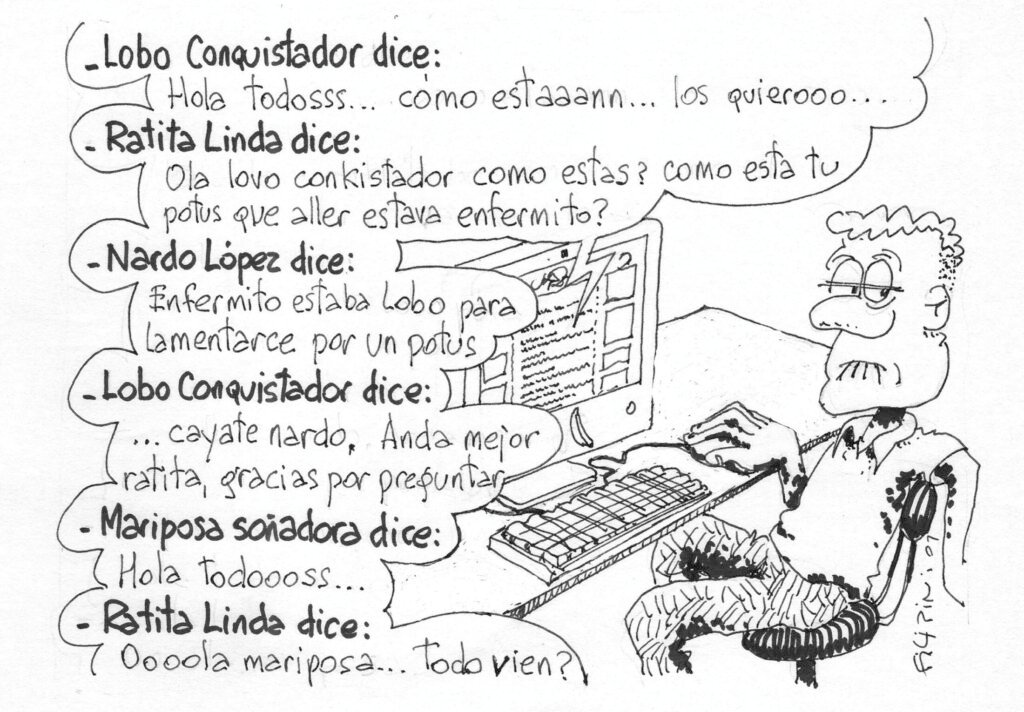 - Lobo Conquistador dice:
Hola todosss... cómo estaaann... los quierooo...
- Ratita Linda dice:
Ola lovo conkistador como estas? como esta tu
potus que aller estava enfermito?
- Nardo López dice:
Enfermito estaba Lobo para
lamentarce por un potus
- Lobo Conquistador dice:
... cayate nardo. Anda mejor
ratita, gracias por preguntar
- Mariposa soñadora dice:
Hola todoooss...
- Ratita Linda dice:
Oooola mariposa... todo vien?